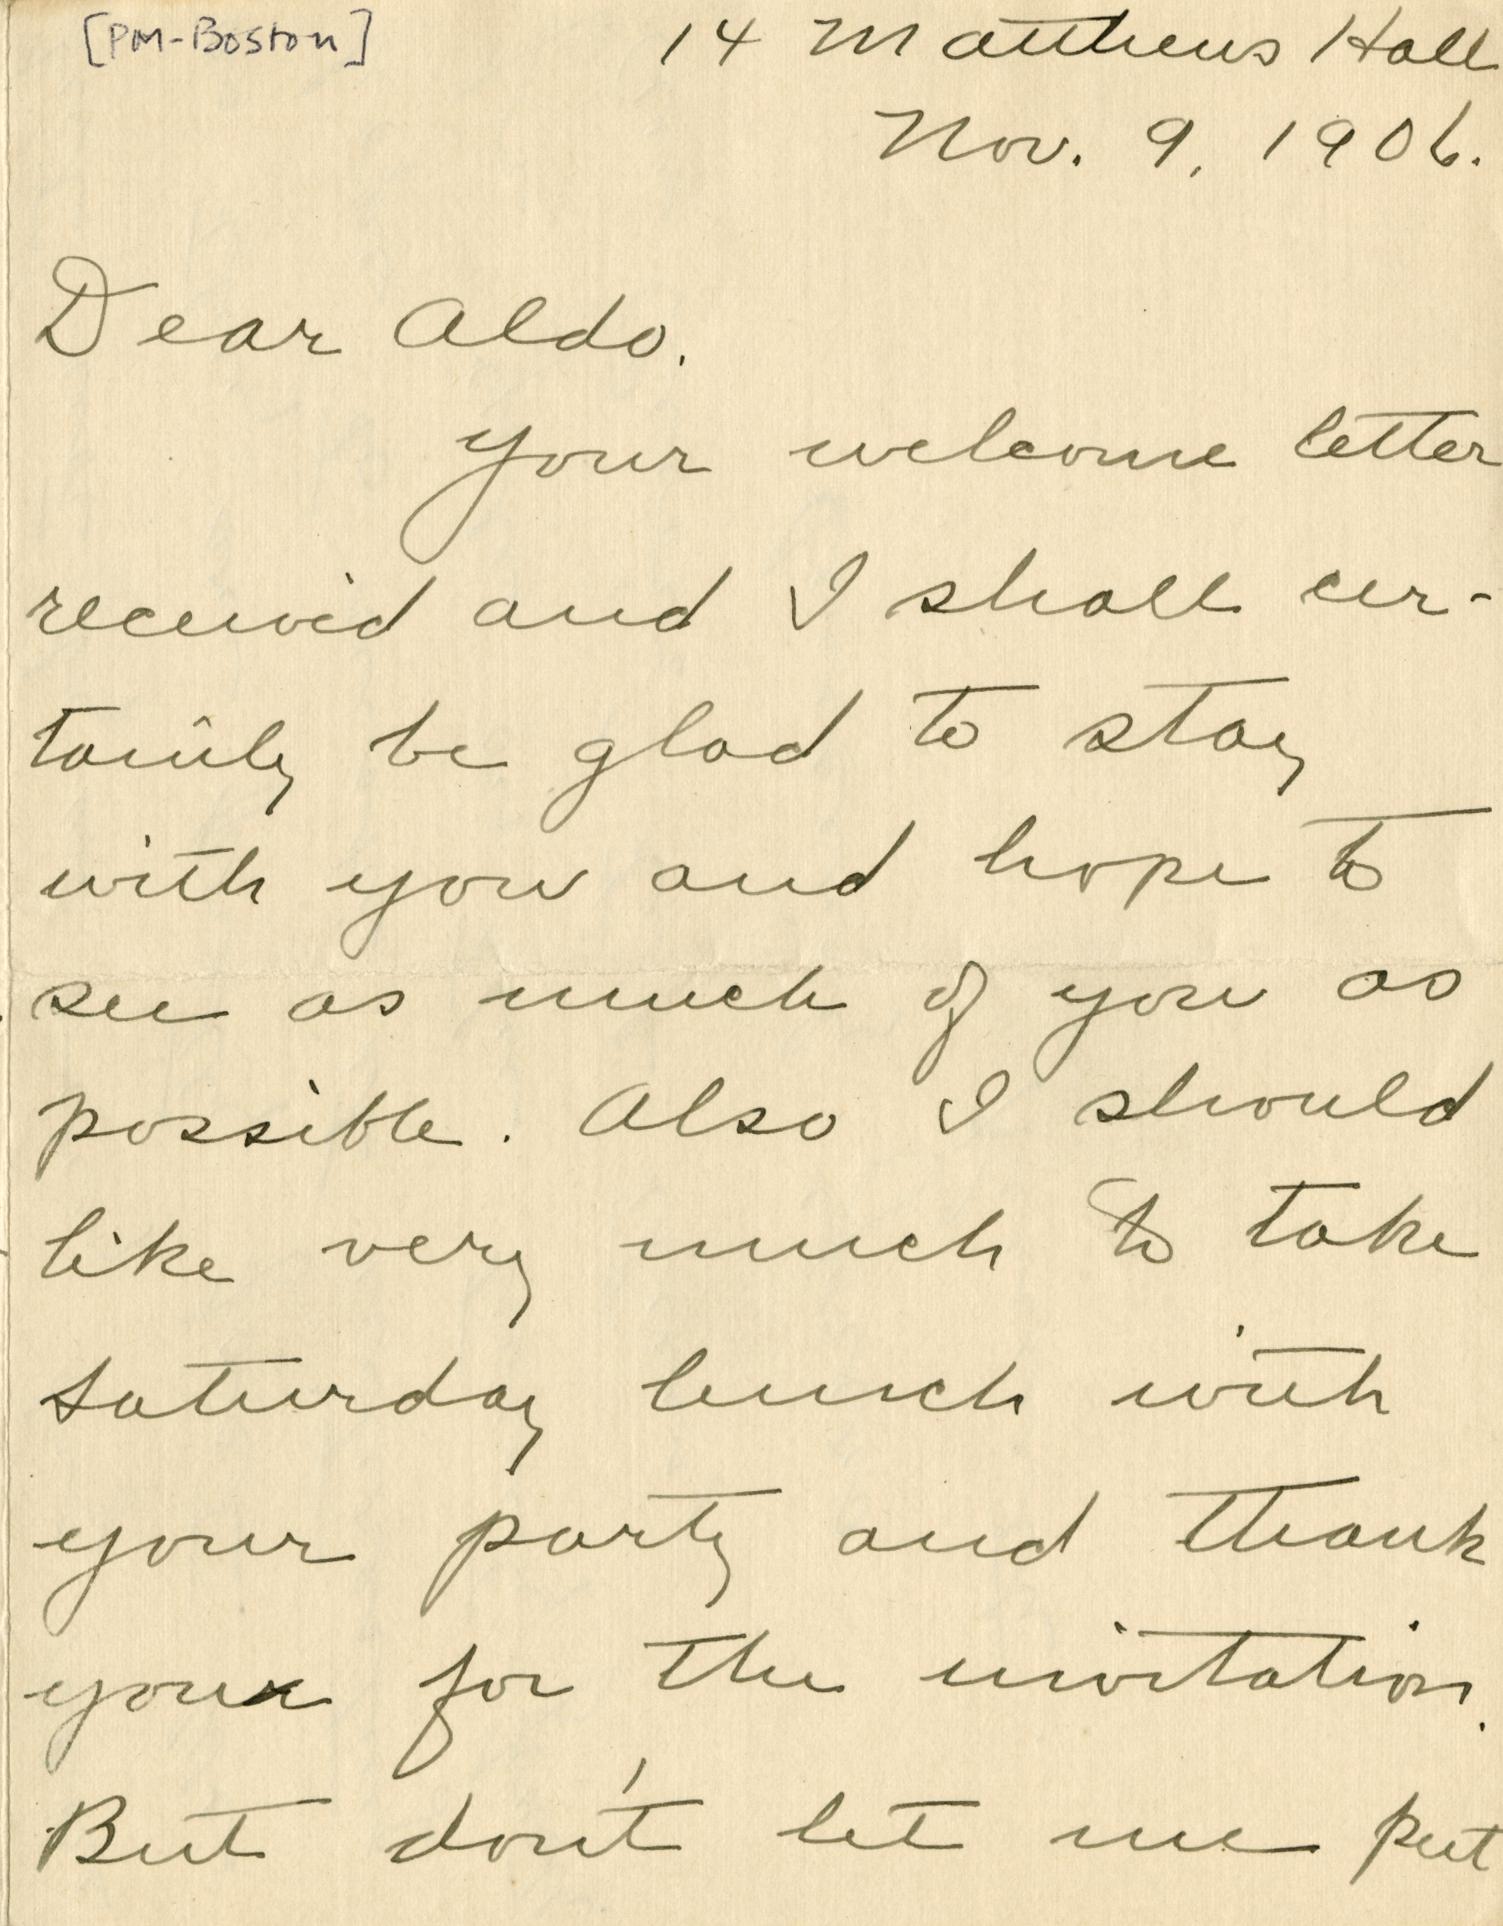 [PM-Boston]
14 Matthews Hall
Nov. 9, 1906.
Dear Aldo.
Your welcome letter
received and I shall cer-
tainly be glad to stay
with you and hope to
see as much of you as
possible. Also I should
like very much to take
Saturday lunch with
your party and thank
your for the invitation.
But don't let me put